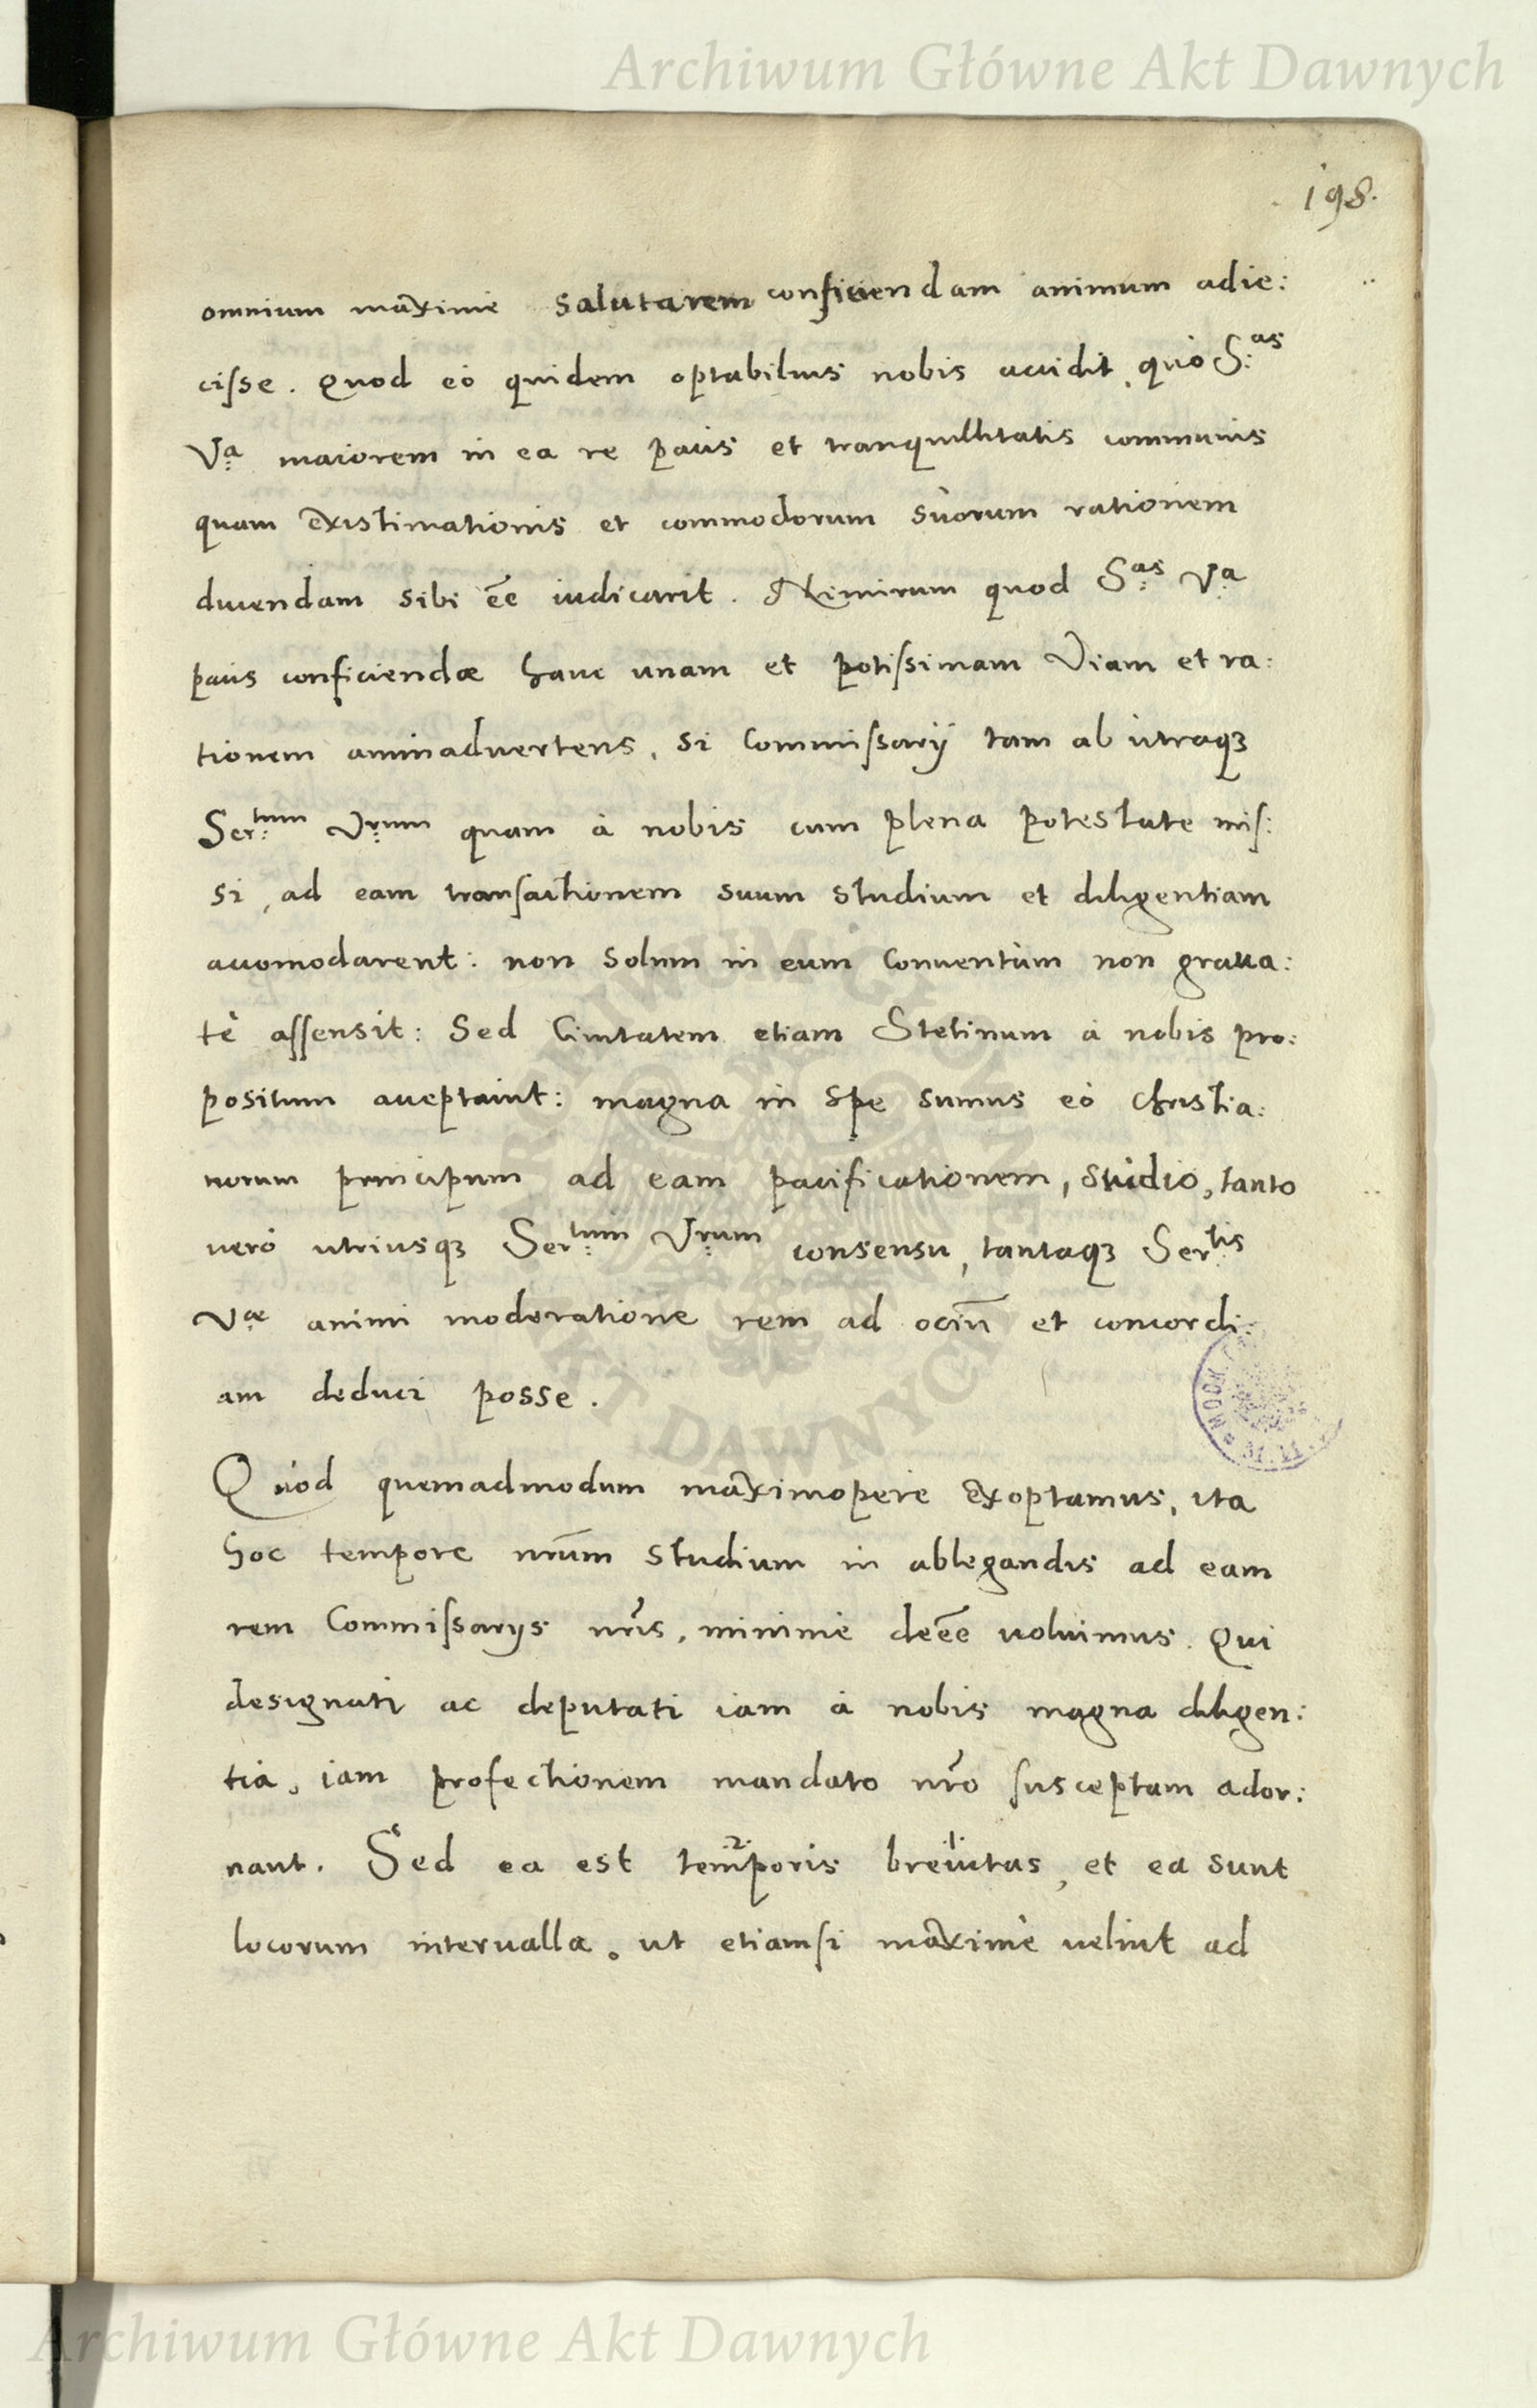 Archiwum Główne Akt Dawnych
198.
omnium maxime salutarem conficiendam animum adie:
cisse. Quod eò quidem optabilius nobis accidit, quò S:as
V:a maiorem in ea re pacis et tranquillitatis communis
quam existimationis et commodorum suorum rationem
ducendam sibi ēē iudicarit. Nimirum quod S:as V:a
pacis conficiendæ hanc unam et potissimam viam et ra:
tionem animadvertens, si Commissarij tam ab utraq3
Ser:tum V:rum quam à nobis cum plena potestate mis:
si, ad eam transactionem suum studium et diligentiam
accomodarent: non solum in eum Conventum non grava:
tè assensit: Sed Civitatem etiam Stetinum à nobis pro:
positum acceptavit: magna in spe sumus eò Christia:
norum principum ad eam pacificationem, studio, tanto
uerò utriusq3 Ser:tum V:rum consensu, tantaq3 Ser:tis
V:æ animi moderatione rem ad ociū et concordi:
am deduci posse.
Quod quemadmodum maximopere exoptamus, ita
hoc tempore nr̄um studium in ablegandis ad eam
rem Commissarijs nr̄is, minimè deēē uoluimus. Qui
designati ac deputati iam à nobis magna diligen:
tia, iam profectionem mandato nr̄o susceptam ador:
nant. Sed ea est .2. temporis .1. brevitas, et ea sunt
locorum interualla, ut etiamsi maximè uelint ad
ARCHIWUM GŁÓWNE AKT DAWNYCH
Archiwum Główne Akt Dawnych